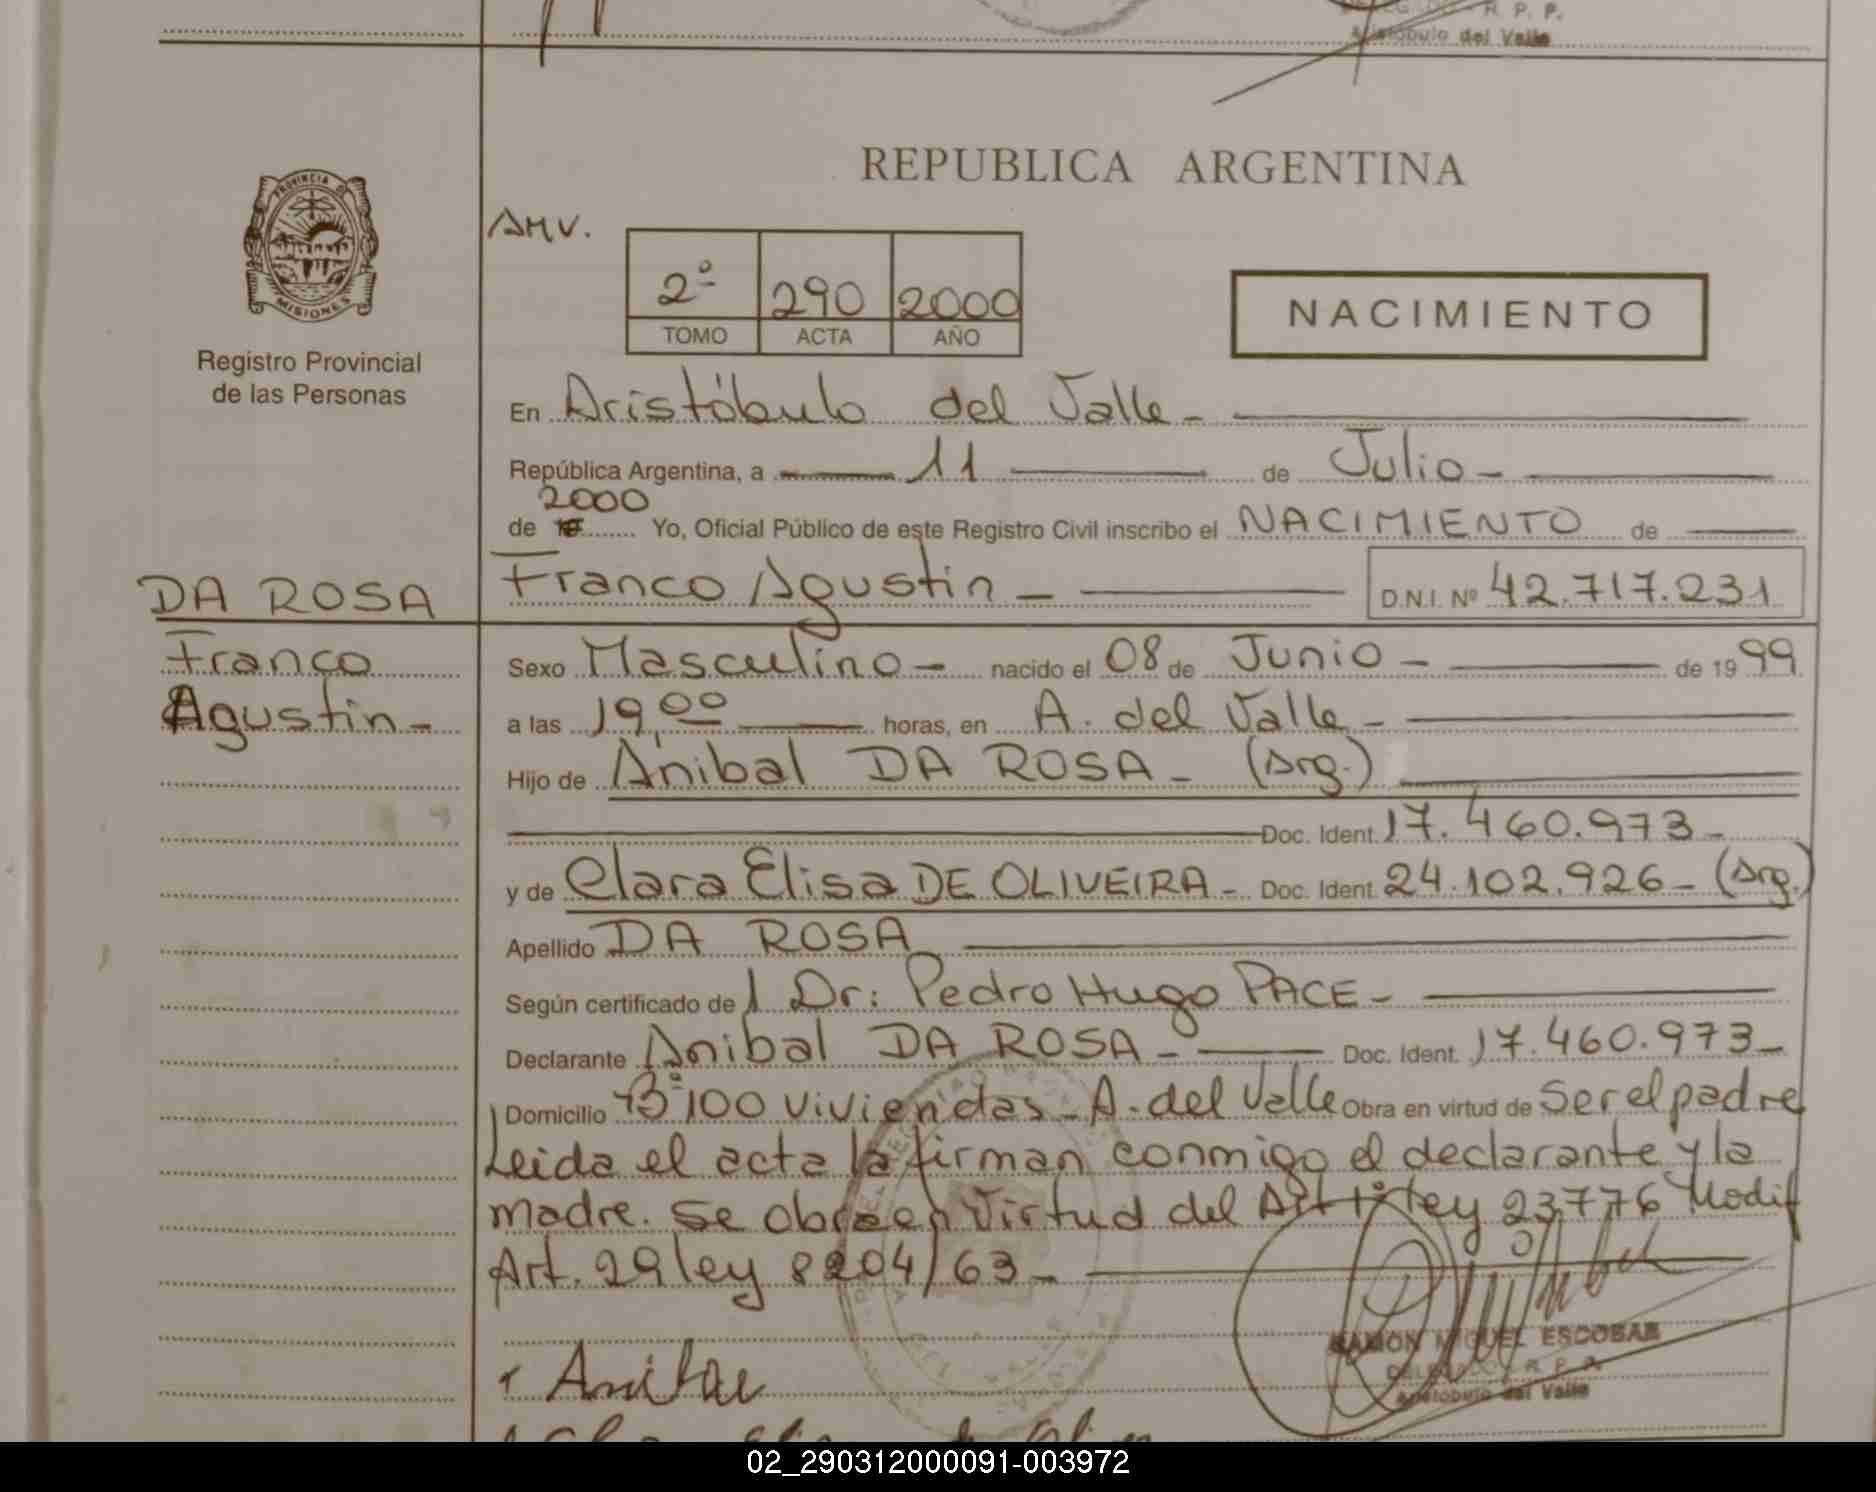 R. P. P.
Aristóbulo del Valle
PROVINCIA D
MISIONES
Registro Provincial
de las Personas
REPUBLICA ARGENTINA
AMV.
2º 290 2000
TOMO ACTA AÑO
NACIMIENTO
En Aristóbulo del Valle -
República Argentina, a 11 de Julio -
2000
de 19 Yo, Oficial Público de este Registro Civil inscribo el NACIMIENTO de
DA ROSA
Franco
Agustin -
Franco Agustin - D.N.I. Nº 42.717.231
Sexo Masculino - nacido el 08 de Junio - de 19 99
a las 19,00 horas, en A. del Valle -
Hijo de Anibal DA ROSA - (Arg.)
Doc. Ident. 17.460.973 -
y de Clara Elisa DE OLIVEIRA - Doc. Ident. 24.102.926 - (Arg.)
Apellido DA ROSA
Según certificado de l Dr: Pedro Hugo PACE -
Declarante Anibal DA ROSA - Doc. Ident. 17.460.973 -
Domicilio Bº 100 viviendas - A. del Valle Obra en virtud de ser el padre
Leida el acta la firman conmigo el declarante y la
madre. Se obra en Virtud del Art 1º ley 23776 Modif
Art. 29 ley 8204/63 -
RAMON MIGUEL ESCOBAR
DELEGADO R. P. P.
Aristóbulo del Valle
02_290312000091-003972